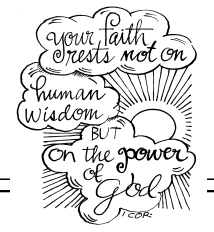 your faith
rests not on
human
wisdom
BUT
on the power
of
God
I COR: